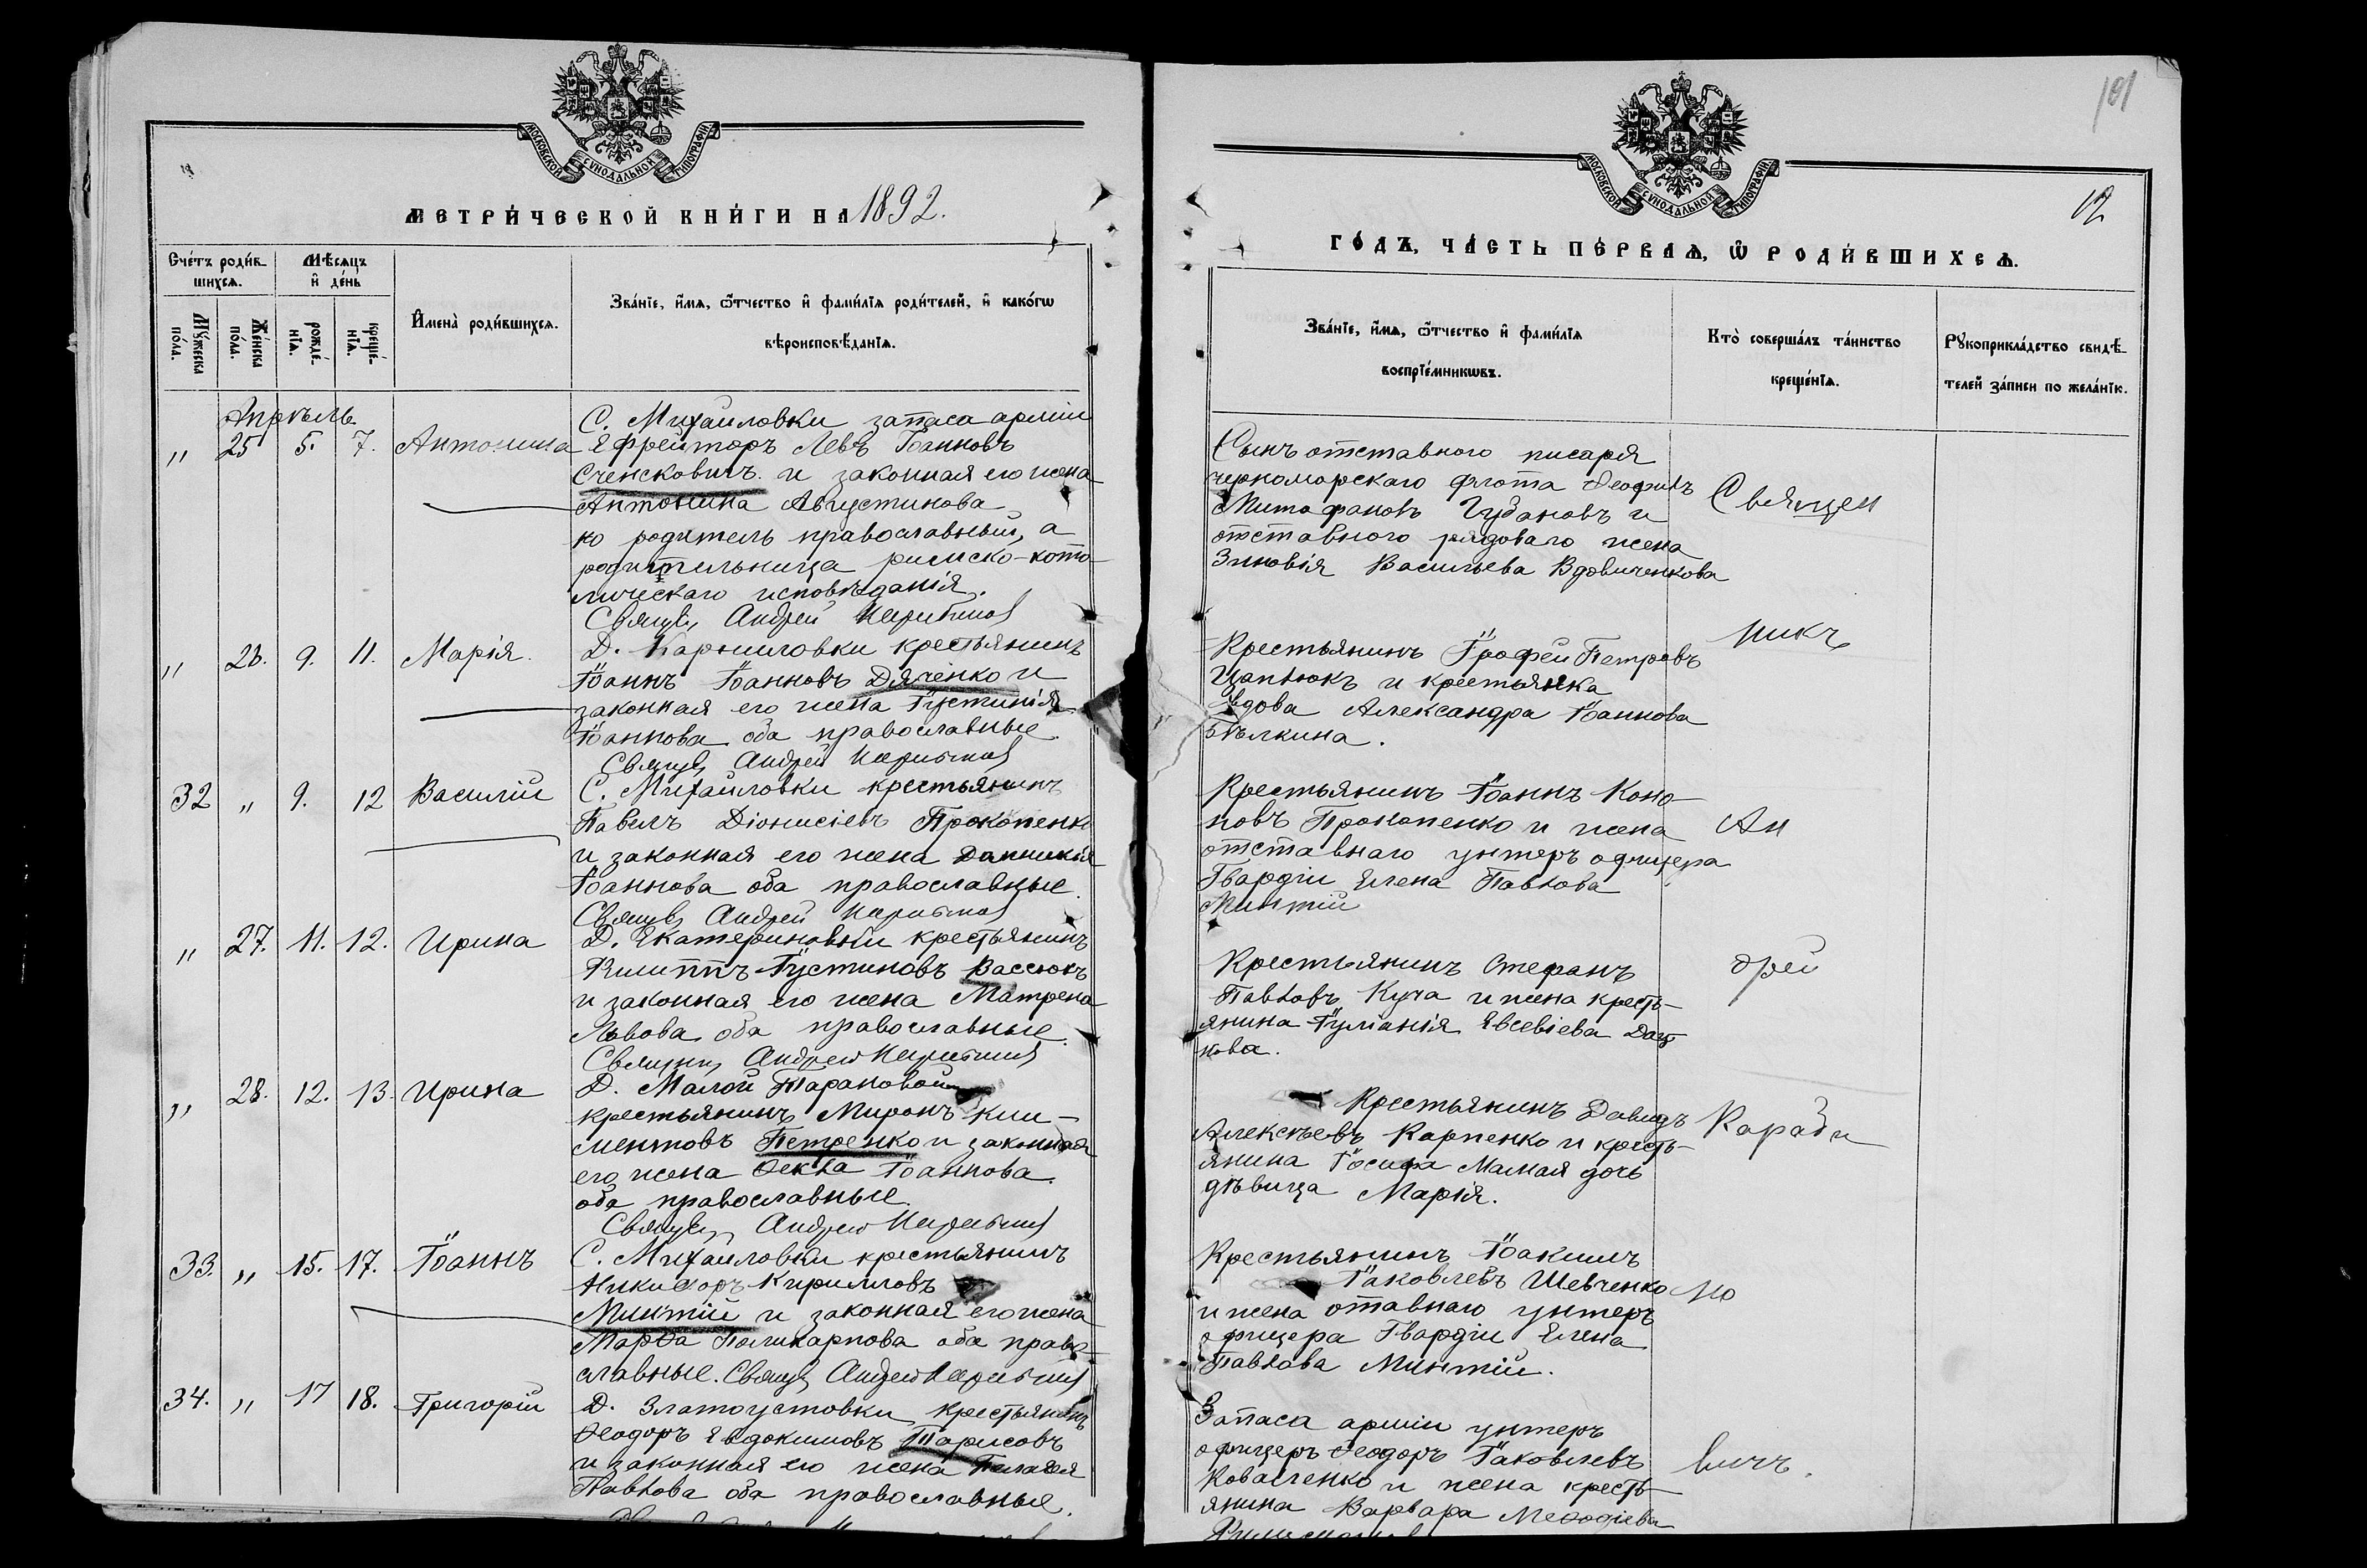 МОСКОВСКОЙ СѴНОДАЛЬНОЙ ТИПОГРАФІИ
МЕТРИ́ЧЕСКОЙ КНИ́ГИ НА 1892.
Сче́тъ роди́в-
шихсѧ.
Мѣ́сѧцъ
и҆ де́нь
Мꙋ́жеска
по́ла.
Же́нска
по́ла.
рожде́-
нїѧ.
креще́-
нїѧ.
И҆мена̀ роди́вшихсѧ.
Зва́нїе, и҆́мѧ, ѻ҆́тчество и҆ фами́лїѧ роди́телей, и҆ како́гѡ
вѣроисповѣ́данїѧ.
Апрѣль
С. Михайловки запаса арміи
„ 25 5. 7. Антонина Ефрейторъ Левъ Іоанновъ
Сченсковичъ и законная его жена
Антонина Августинова
ко родитель православный, а
родительница римско-като-
лическаго исповѣданія.
Священ Андрей
„ 26. 9. 11. Марія. Д. Карниловки крестьянинъ
Іоаннъ Іоанновъ Дяченко и
законная его жена Іустинія
Іоаннова оба православные.
Священ Андрей
32 „ 9. 12 Василій С. Михайловки крестьянинъ
Павелъ Діонисіевъ Прокопенко
и законная его жена Домникія
Іоаннова оба православные.
Священ Андрей
„ 27. 11. 12. Ирина Д. Екатериновки крестьянинъ
Филиппъ Іустиновъ Вассюкъ
и законная его жена Матрена
Львова оба православные.
Священ Андрей
„ 28. 12. 13. Ирина Д. Малой Тарановой
крестьянинъ Миронъ Кли-
ментовъ Петренко и законная
его жена Ѳекла Іоаннова
оба православные.
Священ Андрей
33. „ 15. 17. Іоаннъ С. Михайловки крестьянинъ
Никифоръ Кирилловъ
Минтій и законная его жена
Марѳа Поликарпова оба право-
славные. Священ Андрей
34. „ 17 18. Григорій Д. Златоустовки крестьянинъ
Ѳеодоръ Евдокимовъ Тарисовъ
и законная его жена Пелагея
Павлова оба православные.
101
МОСКОВСКОЙ СѴНОДАЛЬНОЙ ТИПОГРАФІИ
12
ГО́ДЪ, ЧА́СТЬ ПЕ́РВАѦ, Ѽ РОДИ́ВШИХСѦ.
Зва́нїе, и҆́мѧ, ѻ҆́тчество и҆ фами́лїѧ
воспрїе́мникѡвъ.
Кто̀ соверша́лъ та́инство
креще́нїѧ.
Рꙋкоприкла́дство свидѣ́-
телей за́писи по жела́нїю.
Сынъ отставного писаря
черноморскаго флота Ѳеофилъ
Митофановъ Губановъ и
отставного рядоваго жена
Зиновія Васильева Вдовиченкова
Священ
Крестьянинъ Ерофей Петровъ
Цапнюкъ и крестьянка
вдова Александра Іоаннова
Бѣлкина.
никъ
Крестьянинъ Іоаннъ Коно-
новъ Прокопенко и жена
отставнаго унтеръ офицера
Гвардіи Елена Павлова
Минтій
Ан
Крестьянинъ Стефанъ
Павловъ Куча и жена кресть-
янина Іуліанія Евсевіева Дац-
кова.
дрей
Крестьянинъ Давидъ
Алексѣевъ Карпенко и кресть-
янина Іосифа Мамая дочь
дѣвица Марія.
Караби
Крестьянинъ Іоакимъ
Іаковлевъ Шевченко
и жена отавнаго унтеръ
офицера Гвардіи Елена
Павлова Минтій.
но
Запаса арміи унтеръ
офицеръ Ѳеодоръ Іаковлевъ
Коваленко и жена кресть-
янина Варвара Меѳодіева
вичъ.